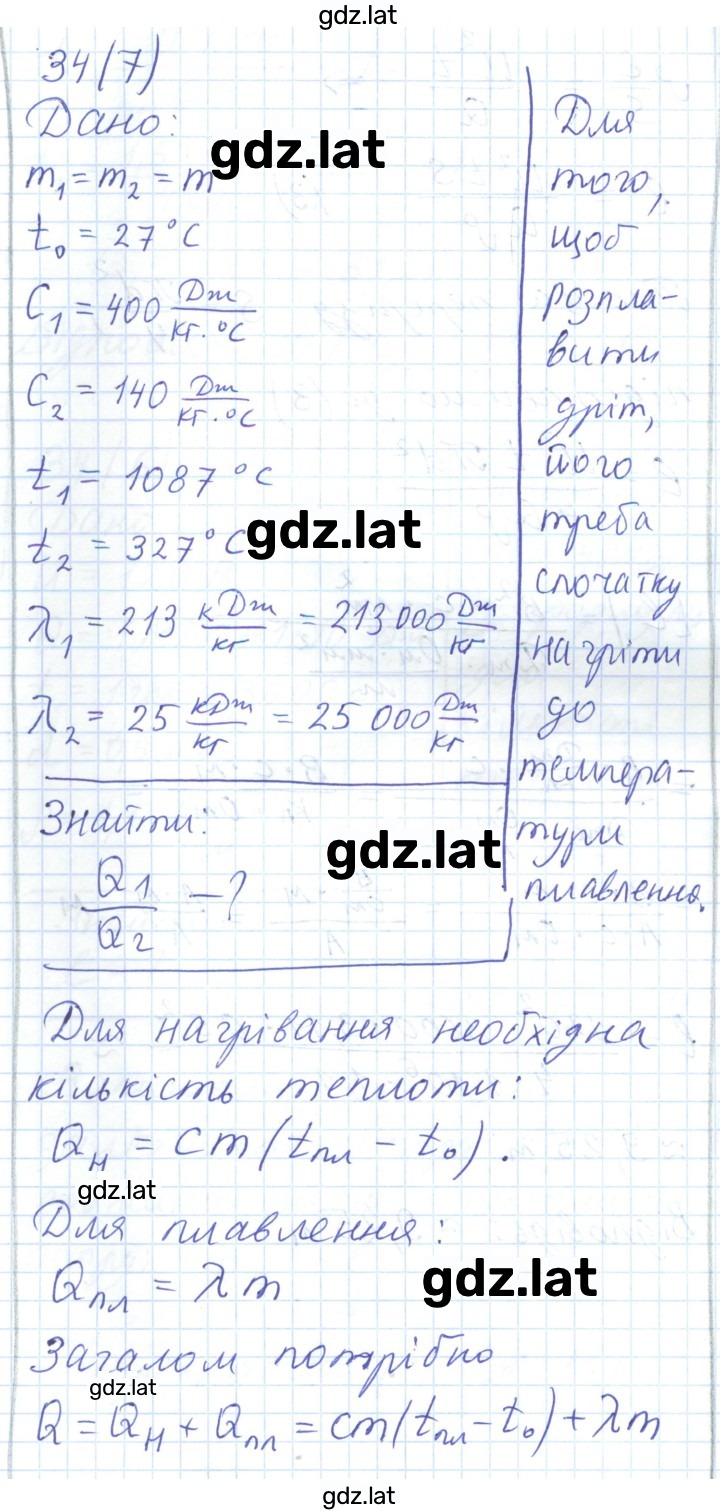 gdz.lat
34(7)
Дано:
gdz.lat
m₁ = m₂ = m
t₀ = 27°C
C₁ = 400 Дж/кг·°C
C₂ = 140 Дж/кг·°C
t₁ = 1087°C
t₂ = 327°C
gdz.lat
λ₁ = 213 кДж/кг = 213 000 Дж/кг
λ₂ = 25 кДж/кг = 25 000 Дж/кг
Знайти:
gdz.lat
Q1/Q2 – ?
Для
того,
щоб
розпла-
вити
дріт,
його
треба
спочатку
нагріти
до
темпера-
тури
плавлення.
Для нагрівання необхідна
кількість теплоти:
Qн = cm(tпл – t₀).
gdz.lat
Для плавлення:
Qпл = λm
gdz.lat
Загалом потрібно
gdz.lat
Q = Qн + Qпл = cm(tпл – t₀) + λm
gdz.lat